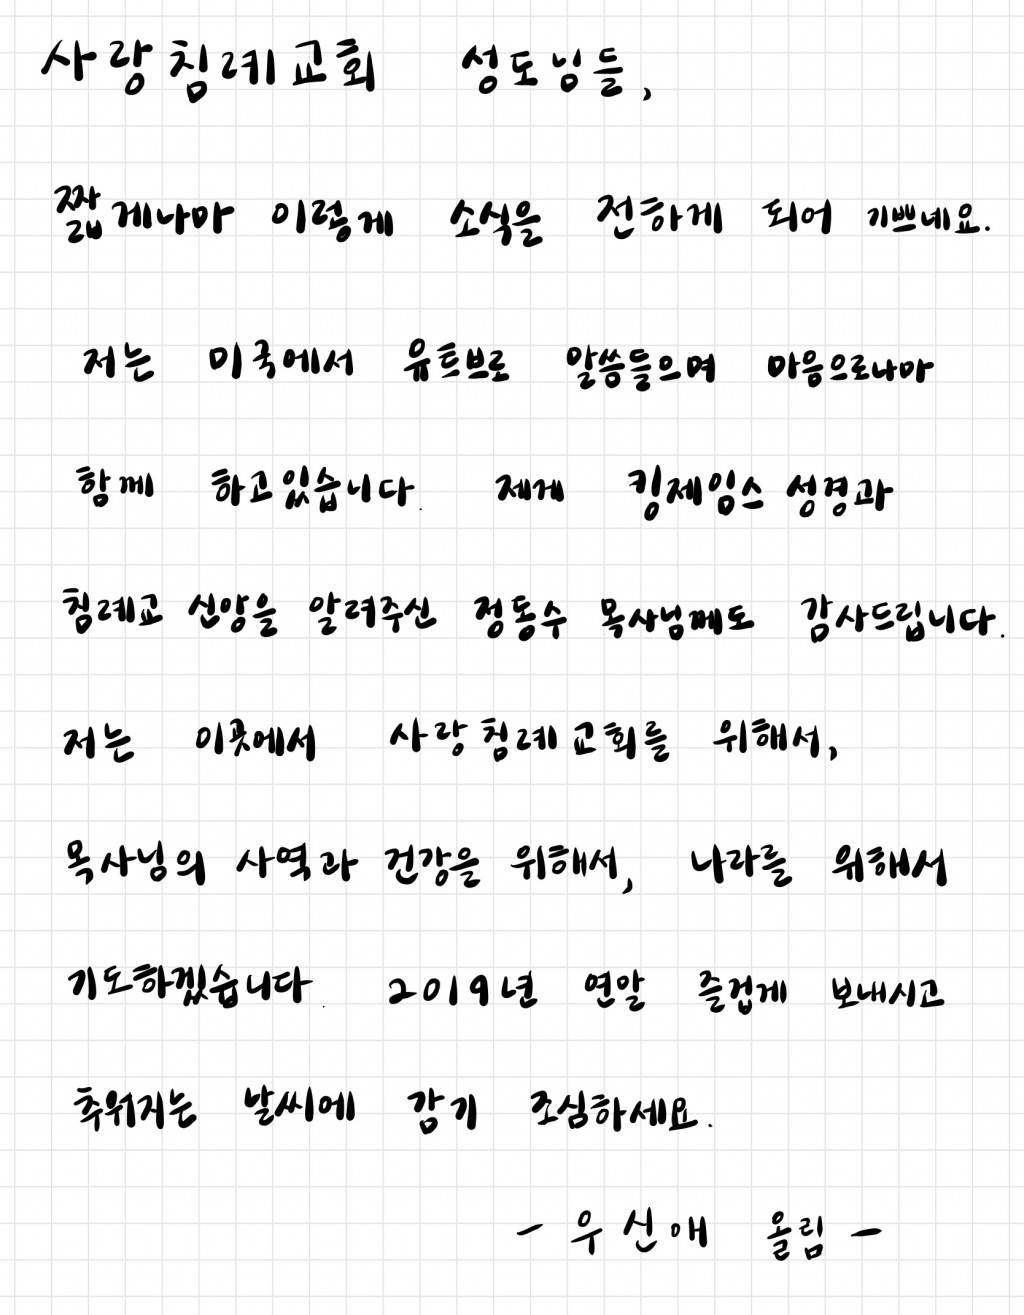 사랑침례교회 성도님들,
짧게나마 이렇게 소식을 전하게 되어 기쁘네요.
저는 미국에서 유트브로 말씀들으며 마음으로나마
함께 하고있습니다. 제게 킹제임스 성경과
침례교 신앙을 알려주신 정동수 목사님께도 감사드립니다.
저는 이곳에서 사랑침례교회를 위해서,
목사님의 사역과 건강을 위해서, 나라를 위해서
기도하겠습니다. 2019년 연말 즐겁게 보내시고
추워지는 날씨에 감기 조심하세요.
- 우신애 올림 -